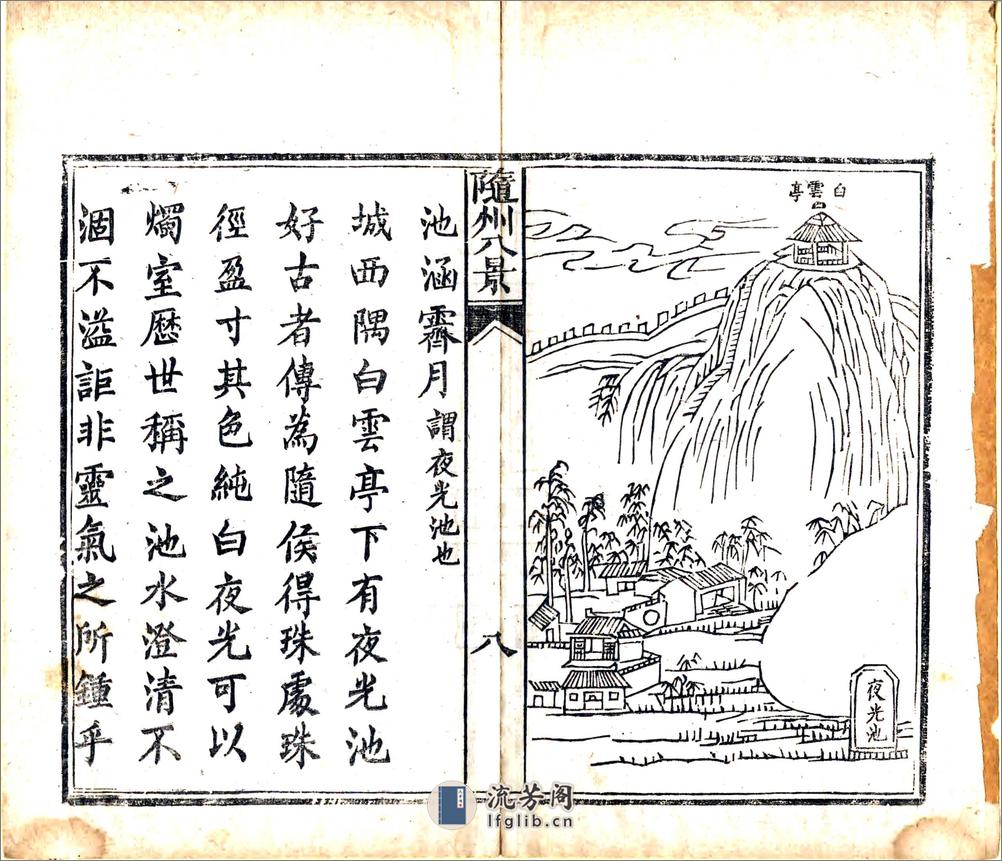 白雲亭
夜光池
隨州八景
八
池涵霽月謂夜光池也
城西隅白雲亭下有夜光池
好古者傳為隨侯得珠處珠
徑盈寸其色純白夜光可以
燭室歷世稱之池水澄清不
涸不溢詎非靈氣之所鍾乎
流芳阁
lfglib.cn